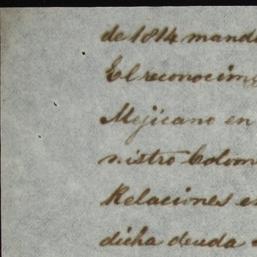 de 1814 mand
El reconocim
Mejicano en
nistro Colom
Relaciones e
dicha deuda